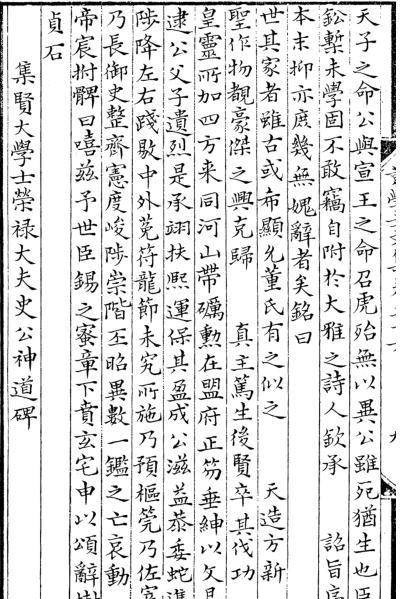 天子之命公與宣王之命召虎殆無以異公雖死猶生也臣
鈆槧末學固不敢竊自附於大雅之詩人欽承　詔旨序
本末抑亦庶幾無媿辭者矣銘曰
世其家者雖古或希顯允董氏有之似之　天造方新
聖作物覩豪傑之興克歸　真主篤生後賢卒其伐功
皇靈所加四方来同河山帶礪勲在盟府正笏垂紳以文
逮公父子遺烈是承翊扶熙運保其盈成公滋益恭委蛇進
陟降左右踐敭中外莬符龍節未究所施乃預樞筦乃佐
乃長御史整齊憲度峻陟崇階丕昭異數一鑑之亡哀動
帝宸拊髀曰嘻兹予世臣錫之宻章下賁玄宅申以頌辭
貞石
集賢大學士榮禄大夫史公神道碑